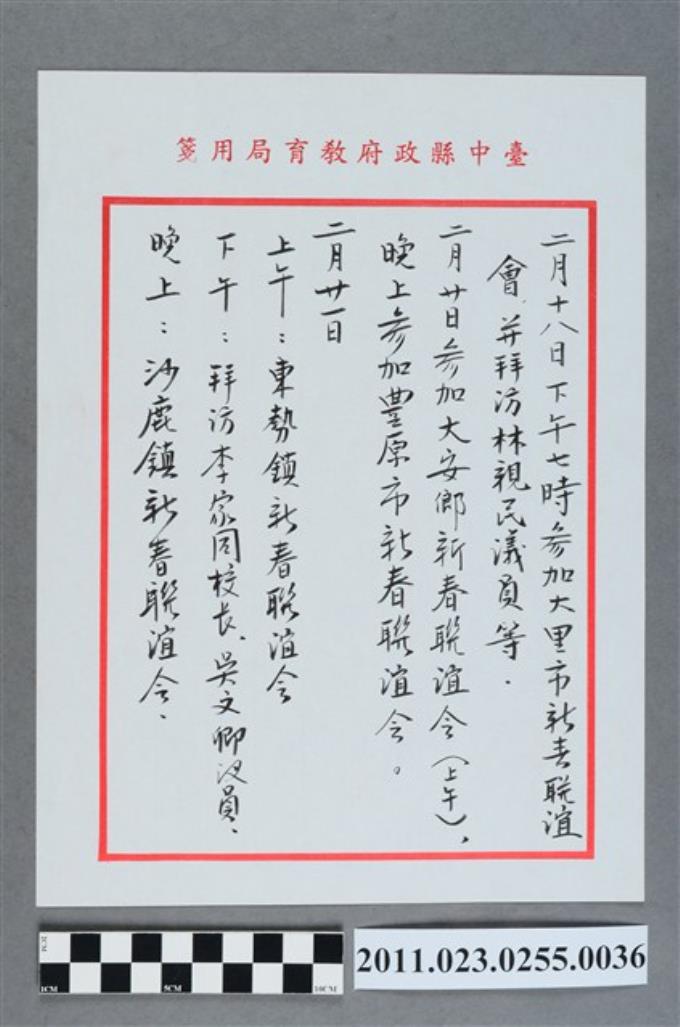 臺中縣政府教育局用箋
二月十八日下午七時參加大里市新春聯誼
會，並拜訪林親民議員等．
二月廿日參加大安鄉新春聯誼会（上午），
晚上參加豐原市新春聯誼会。
二月廿一日
上午：東勢鎮新春聯誼会
下午：拜訪李家同校長、吳文卿议員、
晚上：沙鹿鎮新春聯誼会、
2CM
1CM
5CM
10CM
2011.023.0255.0036